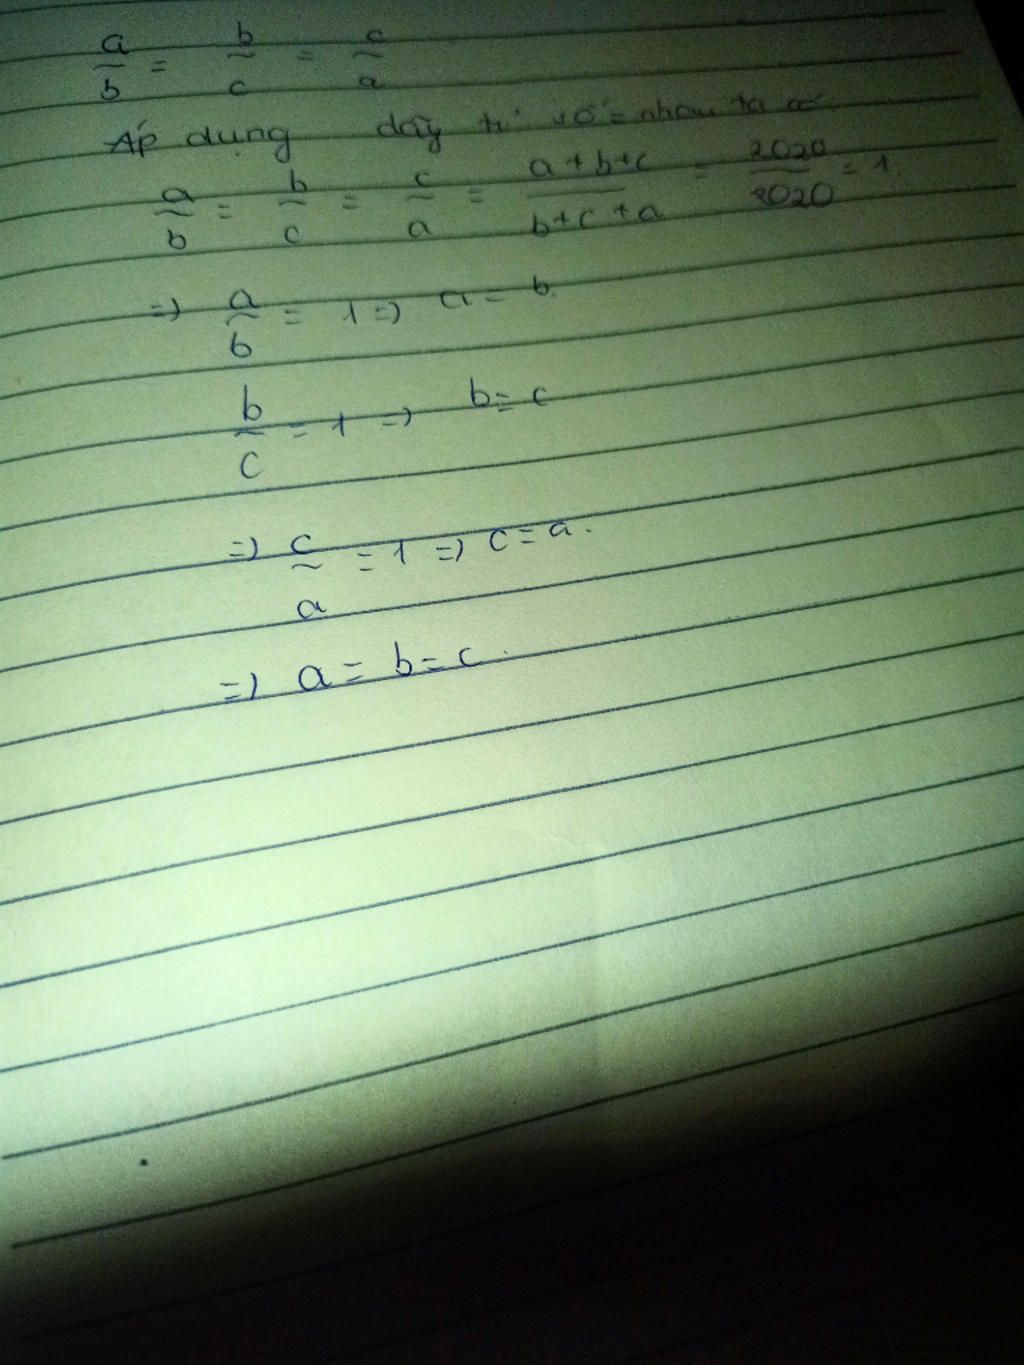 a/b = b/c = c/a
Áp dụng dãy tỉ số = nhau ta có
a/b = b/c = c/a = a+b+c/b+c+a = 2020/2020 = 1.
=> a/b = 1 => a = b.
b/c = 1 => b = c
=> c/a = 1 => c = a.
=> a = b = c.